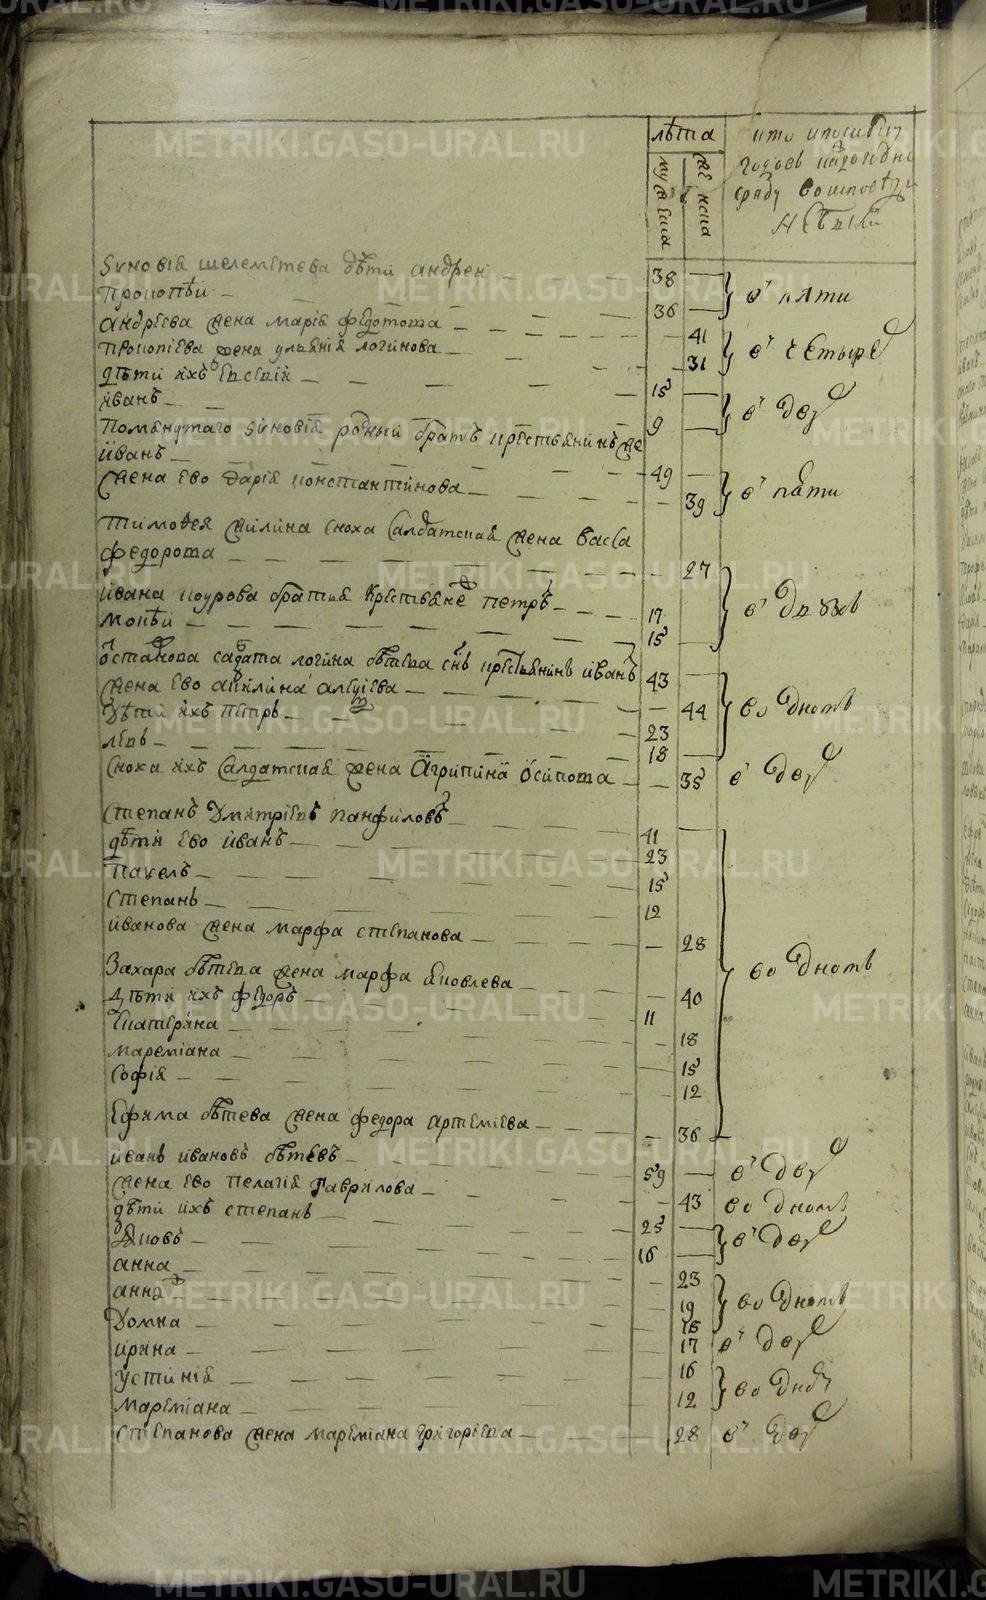 лѣта
мужеска
женска
кто
годовъ
сряду
Зиновия Шелеметева дѣти Андреи 38
Прокопѣи 36 в пяти
Андрѣева жена Мария Федотова 41
Прокопиева жена Ульяния Логинова 31 в четыре
дѣти ихъ Евсевии 15
Иванъ 9 в дву
Помянутаго Зиновия родный братъ крестьянинъ же
Иванъ 49
жена ево Дария Константинова 39 в пяти
Тимофея Жилина сноха салдатская жена Васса
Федорова 27
Ивана Коурова братья крестьяне Петръ 17 в двухъ
Мокѣи 15
Останова салдата Логина Бѣтева снъ крестьянинъ Иванъ 43
жена ево Акилина Алекѣева 44 во дномъ
Дѣти ихъ Петръ 23
Левъ 18
Сноха ихъ салдатская жена Агрипина Осипова 35 в дву
Степанъ Дмитриевъ Панфиловъ 41
дѣти ево Иванъ 23
Павелъ 15
Степанъ 12
Иванова жена Марфа Степанова 28
Захара Бѣтева жена Марфа Яковлева 40 во дномъ
Дѣти ихъ Федоръ 11
Екатерина 18
Маремиана 15
София 12
Ефима Бѣтева жена Федора Артемиева 36
Иванъ Ивановъ Бѣтевъ 59 в дву
жена ево Пелагия Гаврилова 43 во дномъ
дѣти ихъ Степанъ 25
Яковъ 16 в дву
Анна 23
Анна 19 во дномъ
Домна 18
Ирина 17 в дву
Устиния 16
Маремиана 12
Степанова жена Маремиана Григориева 28 в дву
METRIKI.GASO-URAL.RU